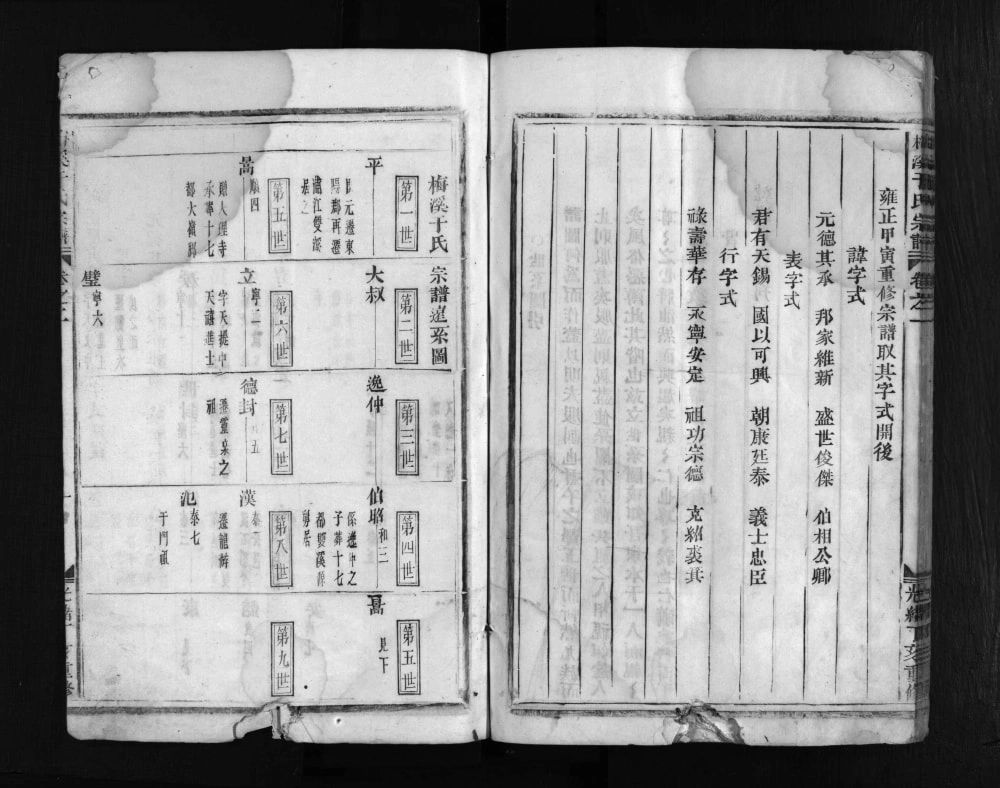 雍正甲寅重修宗譜取其字式開後
諱字式
元德其承　邦家維新　盛世俊傑　伯相公卿
表字式
君有天錫　國以可興　朝康廷泰　義士忠臣
行字式
祿壽華存　永寧安定　祖功宗德　克紹裘其
梅溪干氏宗譜
卷之一
重修
梅溪干氏　宗譜世系圖
第一世
第二世
第三世
第四世
第五世
平
再遷
大叔
逸仲
伯昭
和三
係逸中之
子葬十七
都雙溪
見下
第五世
第六世
第七世
第八世
第九世
暠
順四
贈大理寺
承葬十七
立
寧二
字天挺中
天禧進士
德封
遷靈泉之
祖
漢
遷龍游
璧
寧六
氾
泰七
干門祖